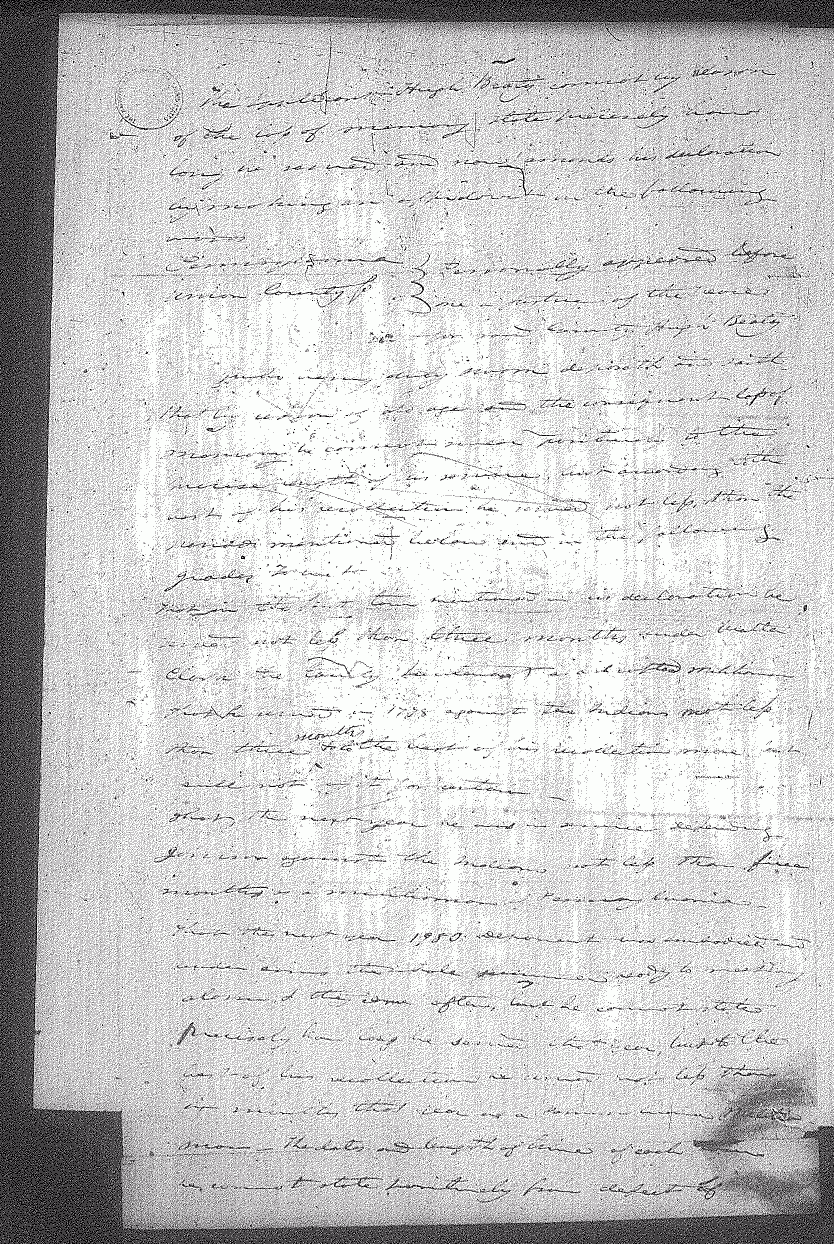 The applicant Hugh Beaty cannot by reason
of the loss of memory state precisely how
long he served and now amends his declaration
by making an affidavit in the following
words
Pennsylvania } Personally appeared before
Union County ss } me a Justice of the Peace
in and for said County Hugh Beaty
who being duly sworn deposeth and saith
that by reason of old age and the consequent loss of
memory he cannot swear positively to the
precise length of his service, but according to the
best of his recollection he served not less than the
periods mentioned below and in the following
grades To wit
That in the first tour mentioned in his declaration he
served not less than three months under
he
That he served in 1778 against the Indians not less
than three months to the best of his recollection more but
will not it for certain
That the next year he was in service
against the Indians not less than five
months as a militiaman Pennsylvania
That the next year 1780 deponent was embodied and
under arms the whole summer ready to
alarm & the same often, but he cannot state
precisely how long he served that year, but to the
best of his recollection he served not less than
six months that year as a
man The date and length of time of each
he cannot state positively from defect of